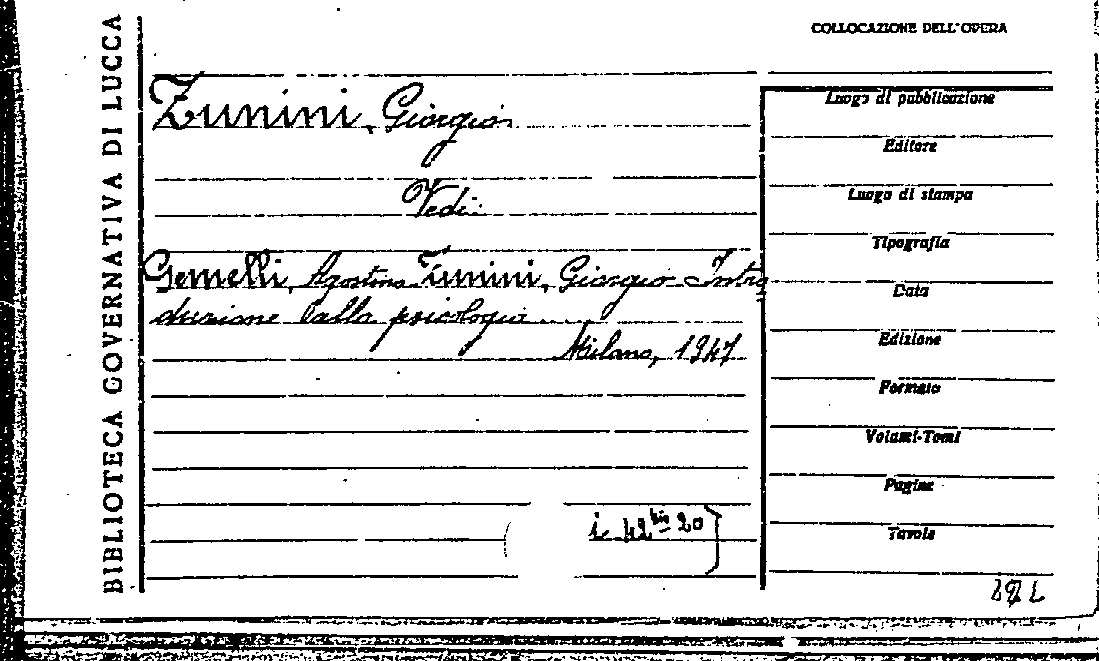 BIBLIOTECA GOVERNATIVA DI LUCCA
COLLOCAZIONE DELL'OPERA
Zunini, Giorgio
Vedi:
Gemelli, Agostino Zunini, Giorgio Intro
duzione alla psicologia
Milano, 1947
i 42 bis 20
Luogo di pubblicazione
Editore
Luogo di stampa
Tipografia
Data
Edizione
Formato
Volumi-Tomi
Pagine
Tavole